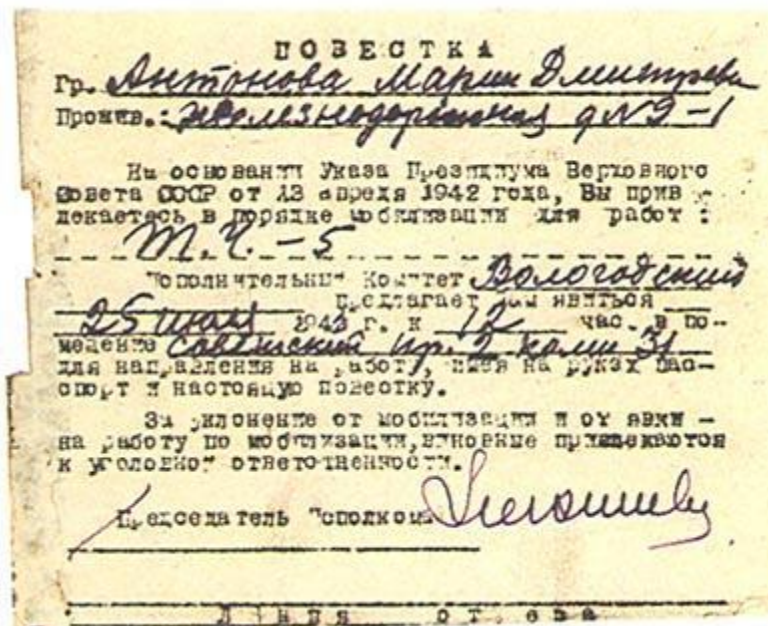 ПОВЕСТКА
Гр. Антонова Мария Дмитриев
Прожив.: Железнодорожная д № 9-1
На основании Указа Президиума Верховного
Совета СССР от 13 апреля 1942 года, Вы прив
лекаетесь в порядке мобилизации для работ :
Т.Ч. - 5
Исполнительный Комитет Вологодский
предлагает Вам явиться
25 1942 г. к 12 час. в по-
мещение Советский пр. 2 комн 31
для направления на работу, имея на руках пас-
спорт и настоящую повестку.
За уклонение от мобилизации и от явки -
на работу по мобилизации, виновные привлекаются
к уголовной ответственности.
Председатель Исполкома
Линия отреза